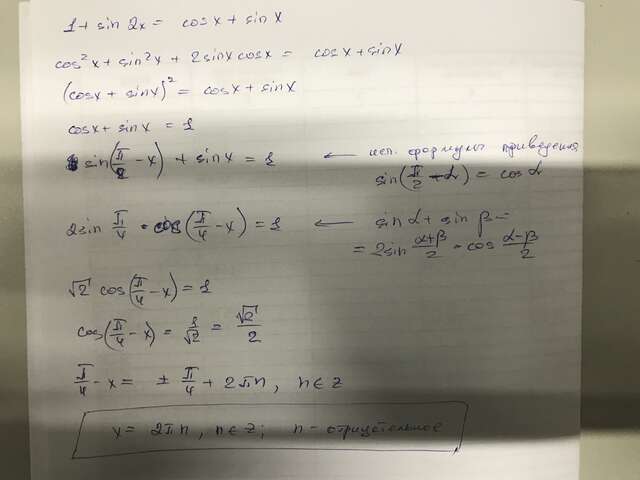 1 + sin 2x = cosx + sinx
cos²x + sin²x + 2sinx cosx = cosx + sinx
(cosx + sinx)² = cosx + sinx
cosx + sinx = 1
sin(π/2 - x) + sinx = 1 ← исп. формулы приведения
sin(π/2 - α) = cos α
2sin π/4 · cos(π/4 - x) = 1 ← sin α + sin β =
= 2sin (α+β)/2 · cos (α-β)/2
√2 cos(π/4 - x) = 1
cos(π/4 - x) = 1/√2 = √2/2
π/4 - x = ± π/4 + 2πn, n ∈ z
x = 2πn, n ∈ z; n - отрицетельное